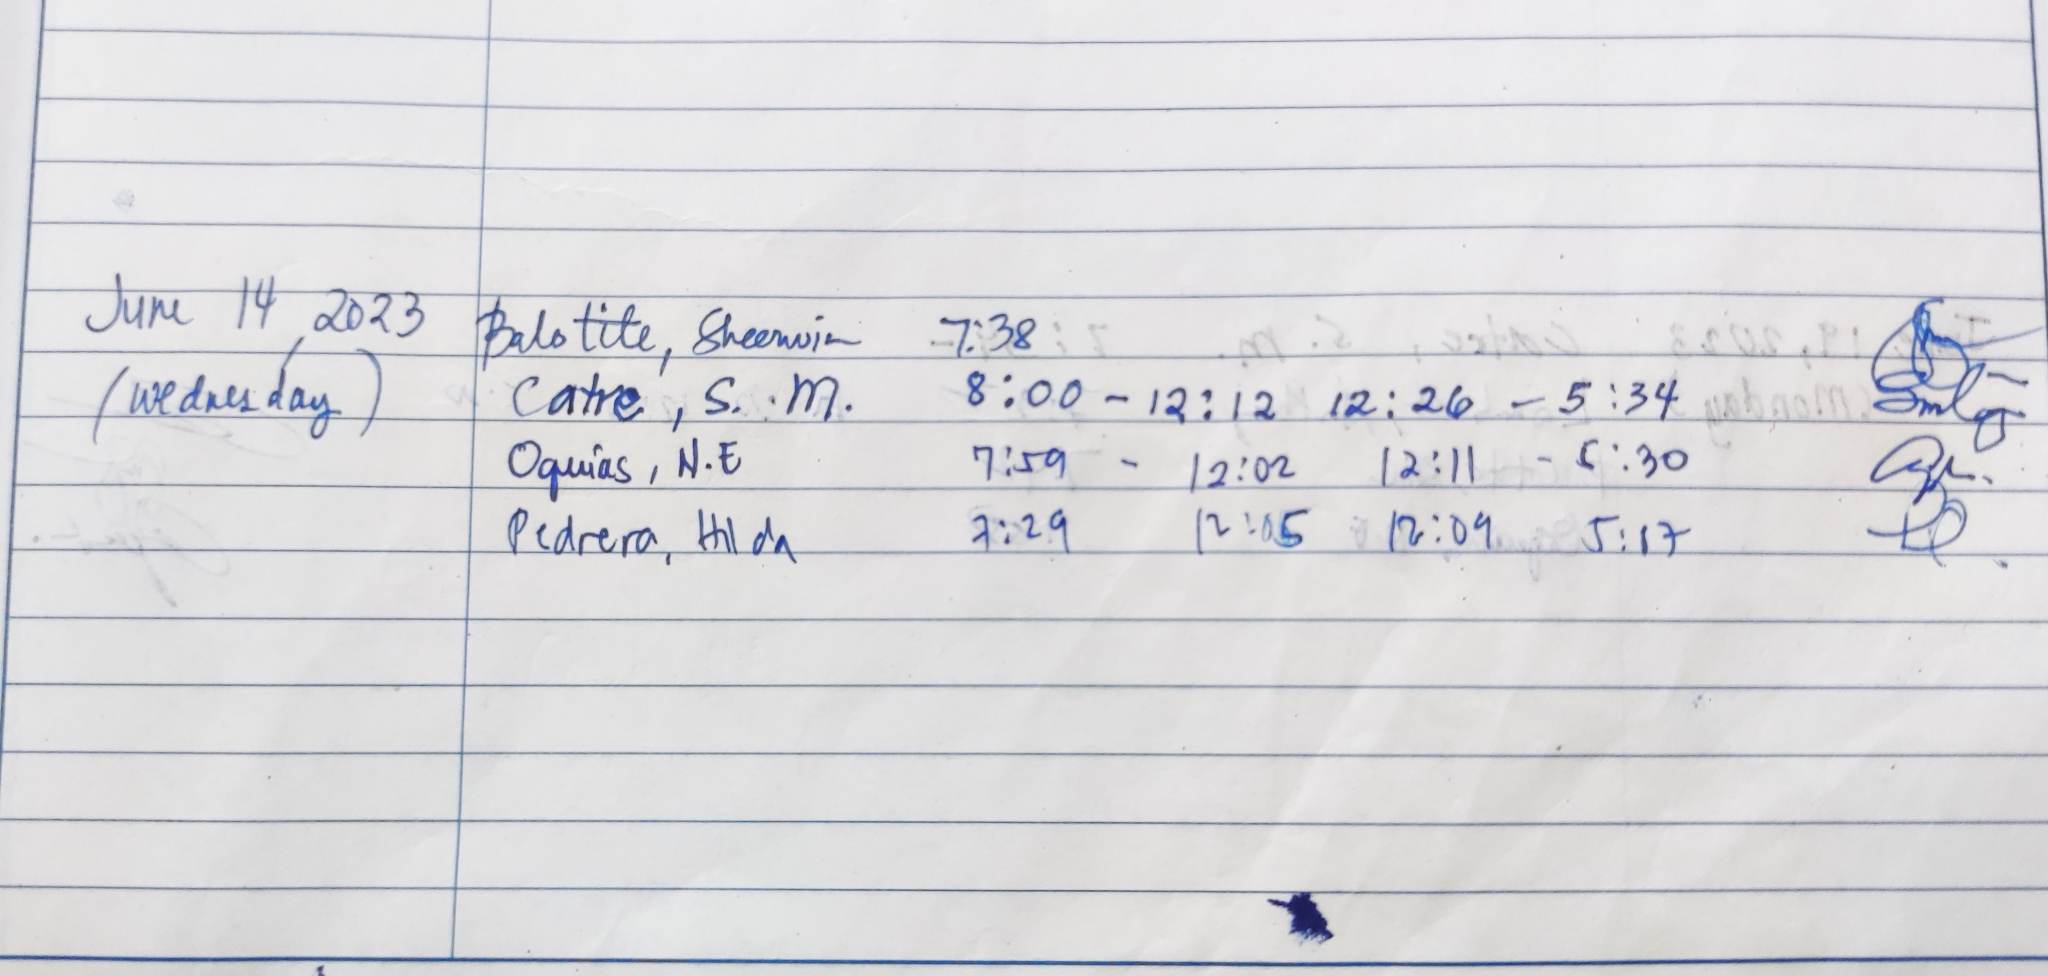 June 14, 2023 Balotite, Sheerwin 7:38
(Wednesday) Catre, S. M. 8:00 - 12:12 12:26 - 5:34
Oquias, N.E 7:59 - 12:02 12:11 - 5:30
Pedrera, Hilda 7:29 12:05 12:09 5:17